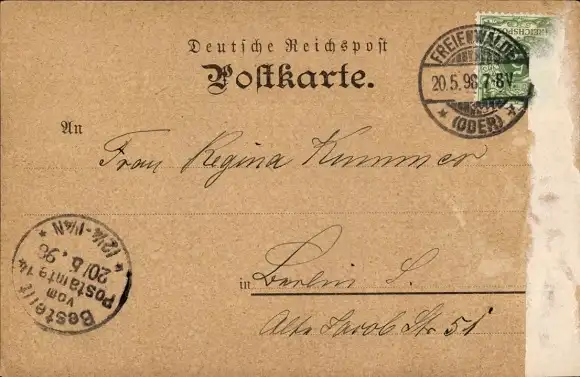 Deutsche Reichspost
Postkarte.
FREIENWALDE
20.5.98.7-8V.
* (ODER) *
REICHSPOST
An
Frau Regina Kummer
in Berlin S.
Alte Jacob Str 51
Bestellt
vom
Postamte 14
20/5.98
* 12¼-1¼N *